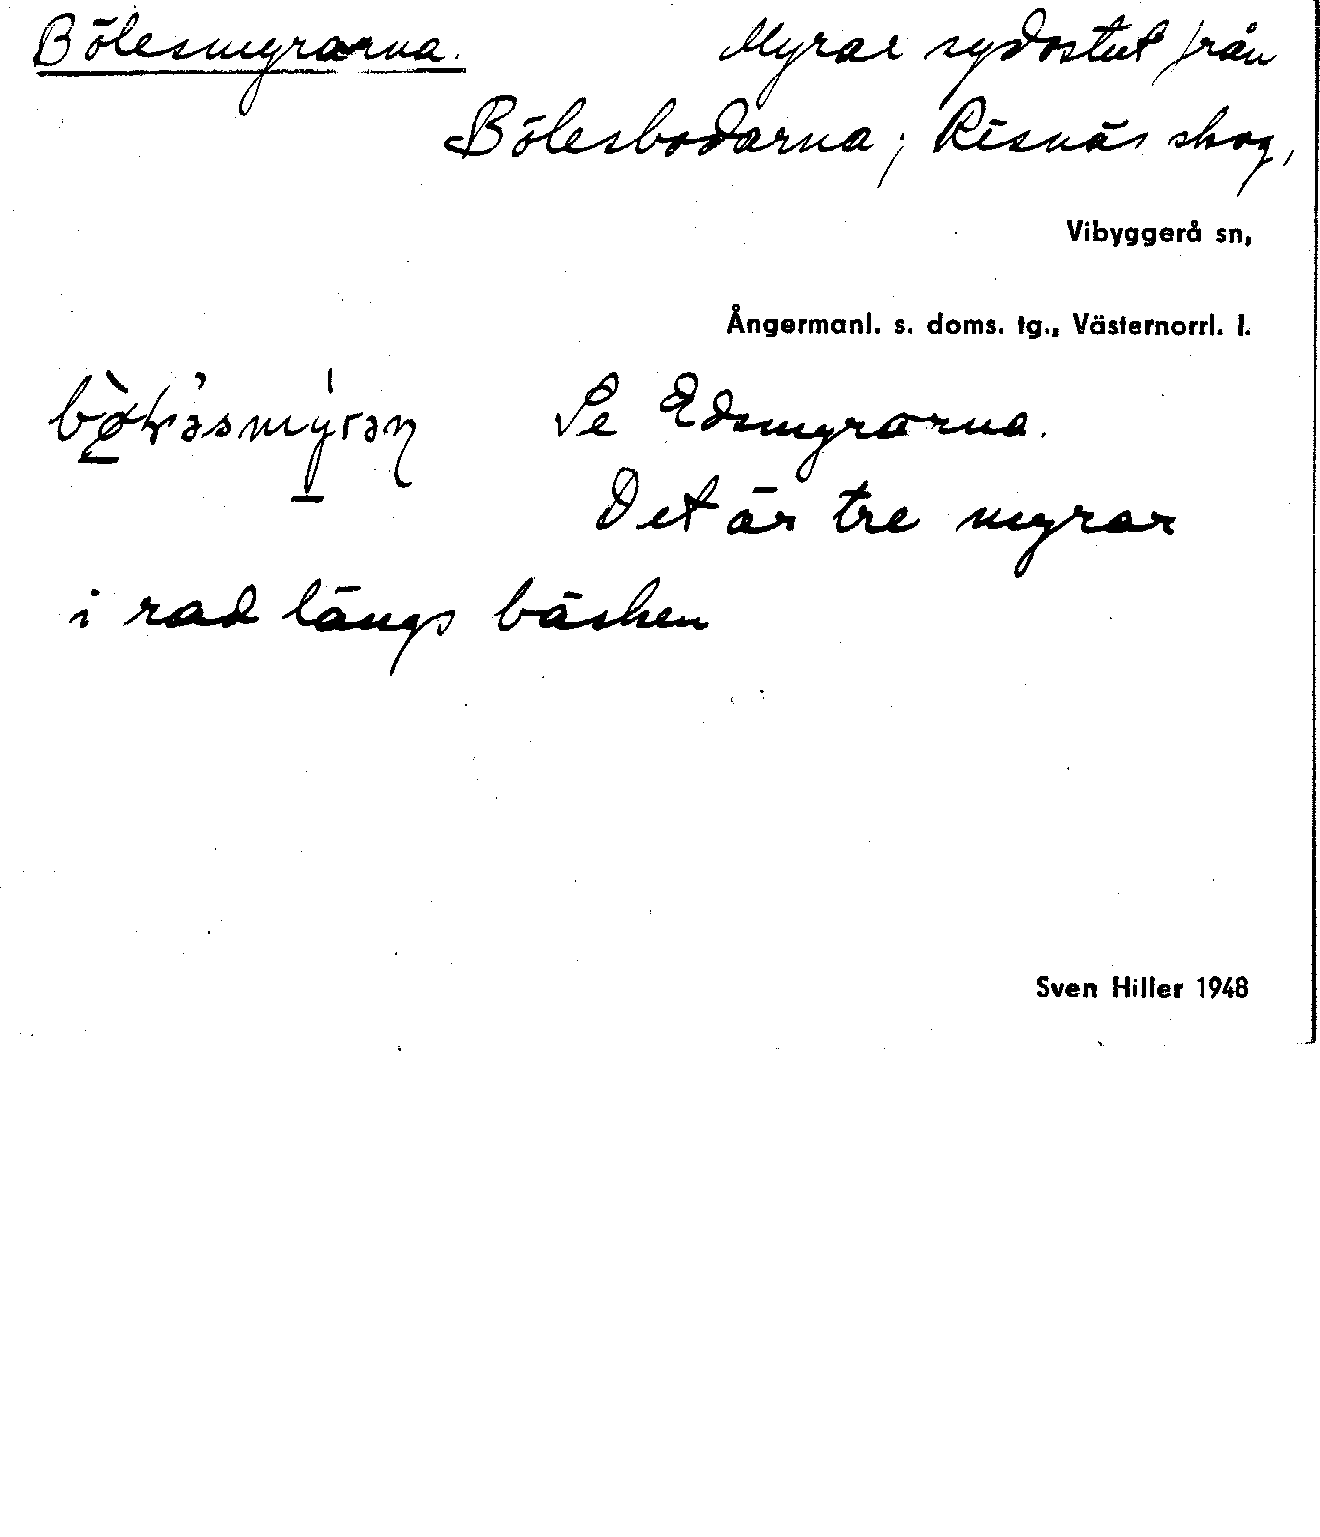 Bölesmyrarna. Myrar sydostut från
Bölesbodarna, Risnäs skog,
Vibyggerå sn,
Ångermanl. s. doms. tg., Västernorrl. l.
Se Edsmyrarna.
Det är tre myrar
i rad längs bäcken
Sven Hiller 1948